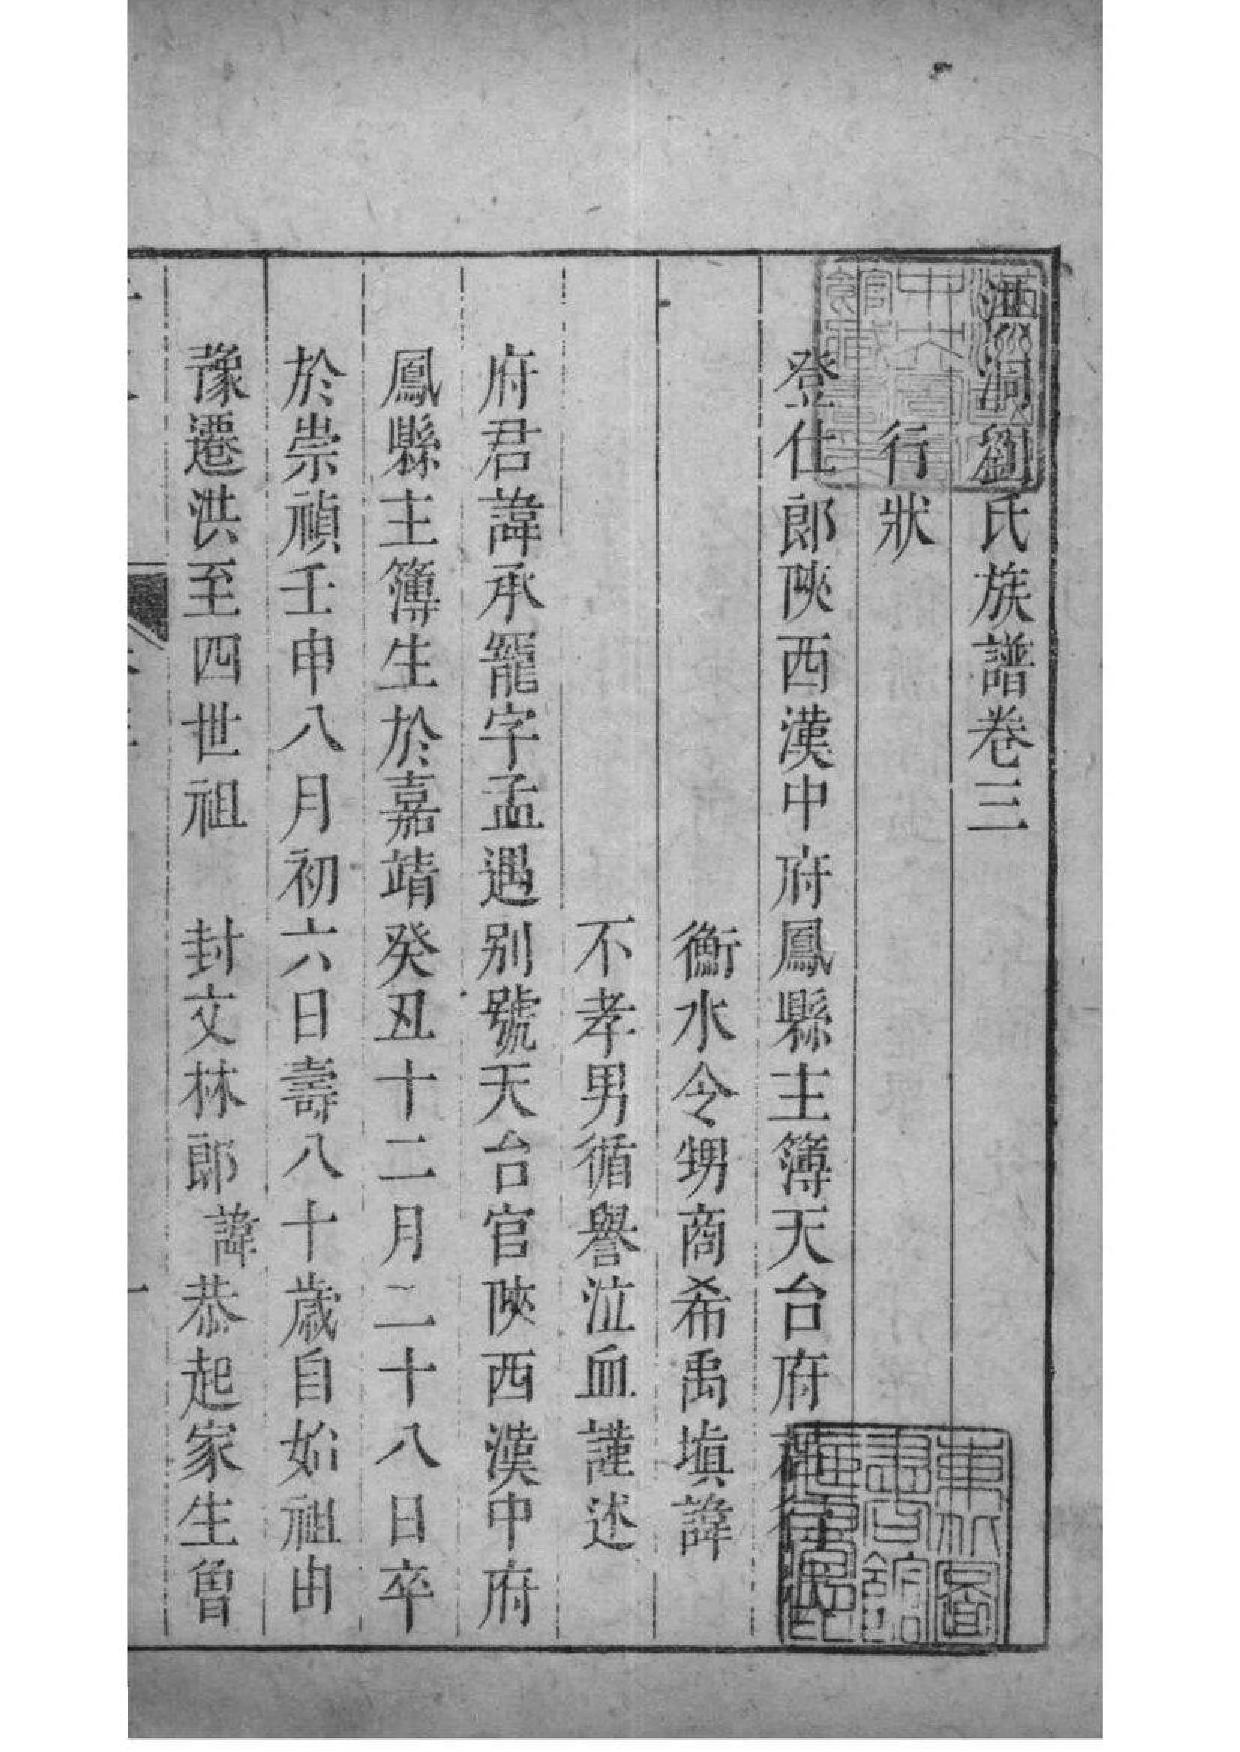 洪洞劉氏族譜卷三
行狀
登仕郎陝西漢中府鳳縣主簿天台府君行
衡水令甥商希禹塡諱
不孝男循譽泣血謹述
府君諱承寵字孟遇别號天台官陝西漢中府
鳳縣主簿生於嘉靖癸丑十二月二十八日卒
於崇禎壬申八月初六日壽八十歲自始祖由
豫遷洪至四世祖 封文林郎 諱恭起家生曾